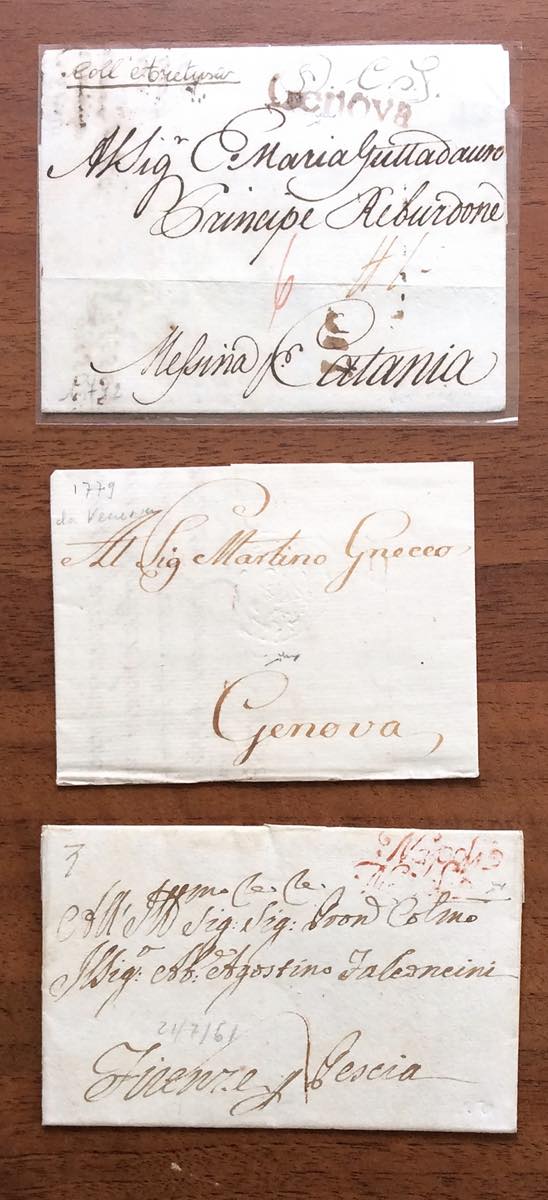 Coll Aretusa
Genova
Al Sig.r C. Maria Guttadauro
Principe Reburdone
6
Messina p. Catania
1779
da Venezia
Al Sig Martino Gnecco
Genova
3
Napoli
All' Ill.mo
Sig: Sig: Pron Colmo
Il Sig: Ab: Agostino Falconcini
21/7/61
Firenze p Pescia